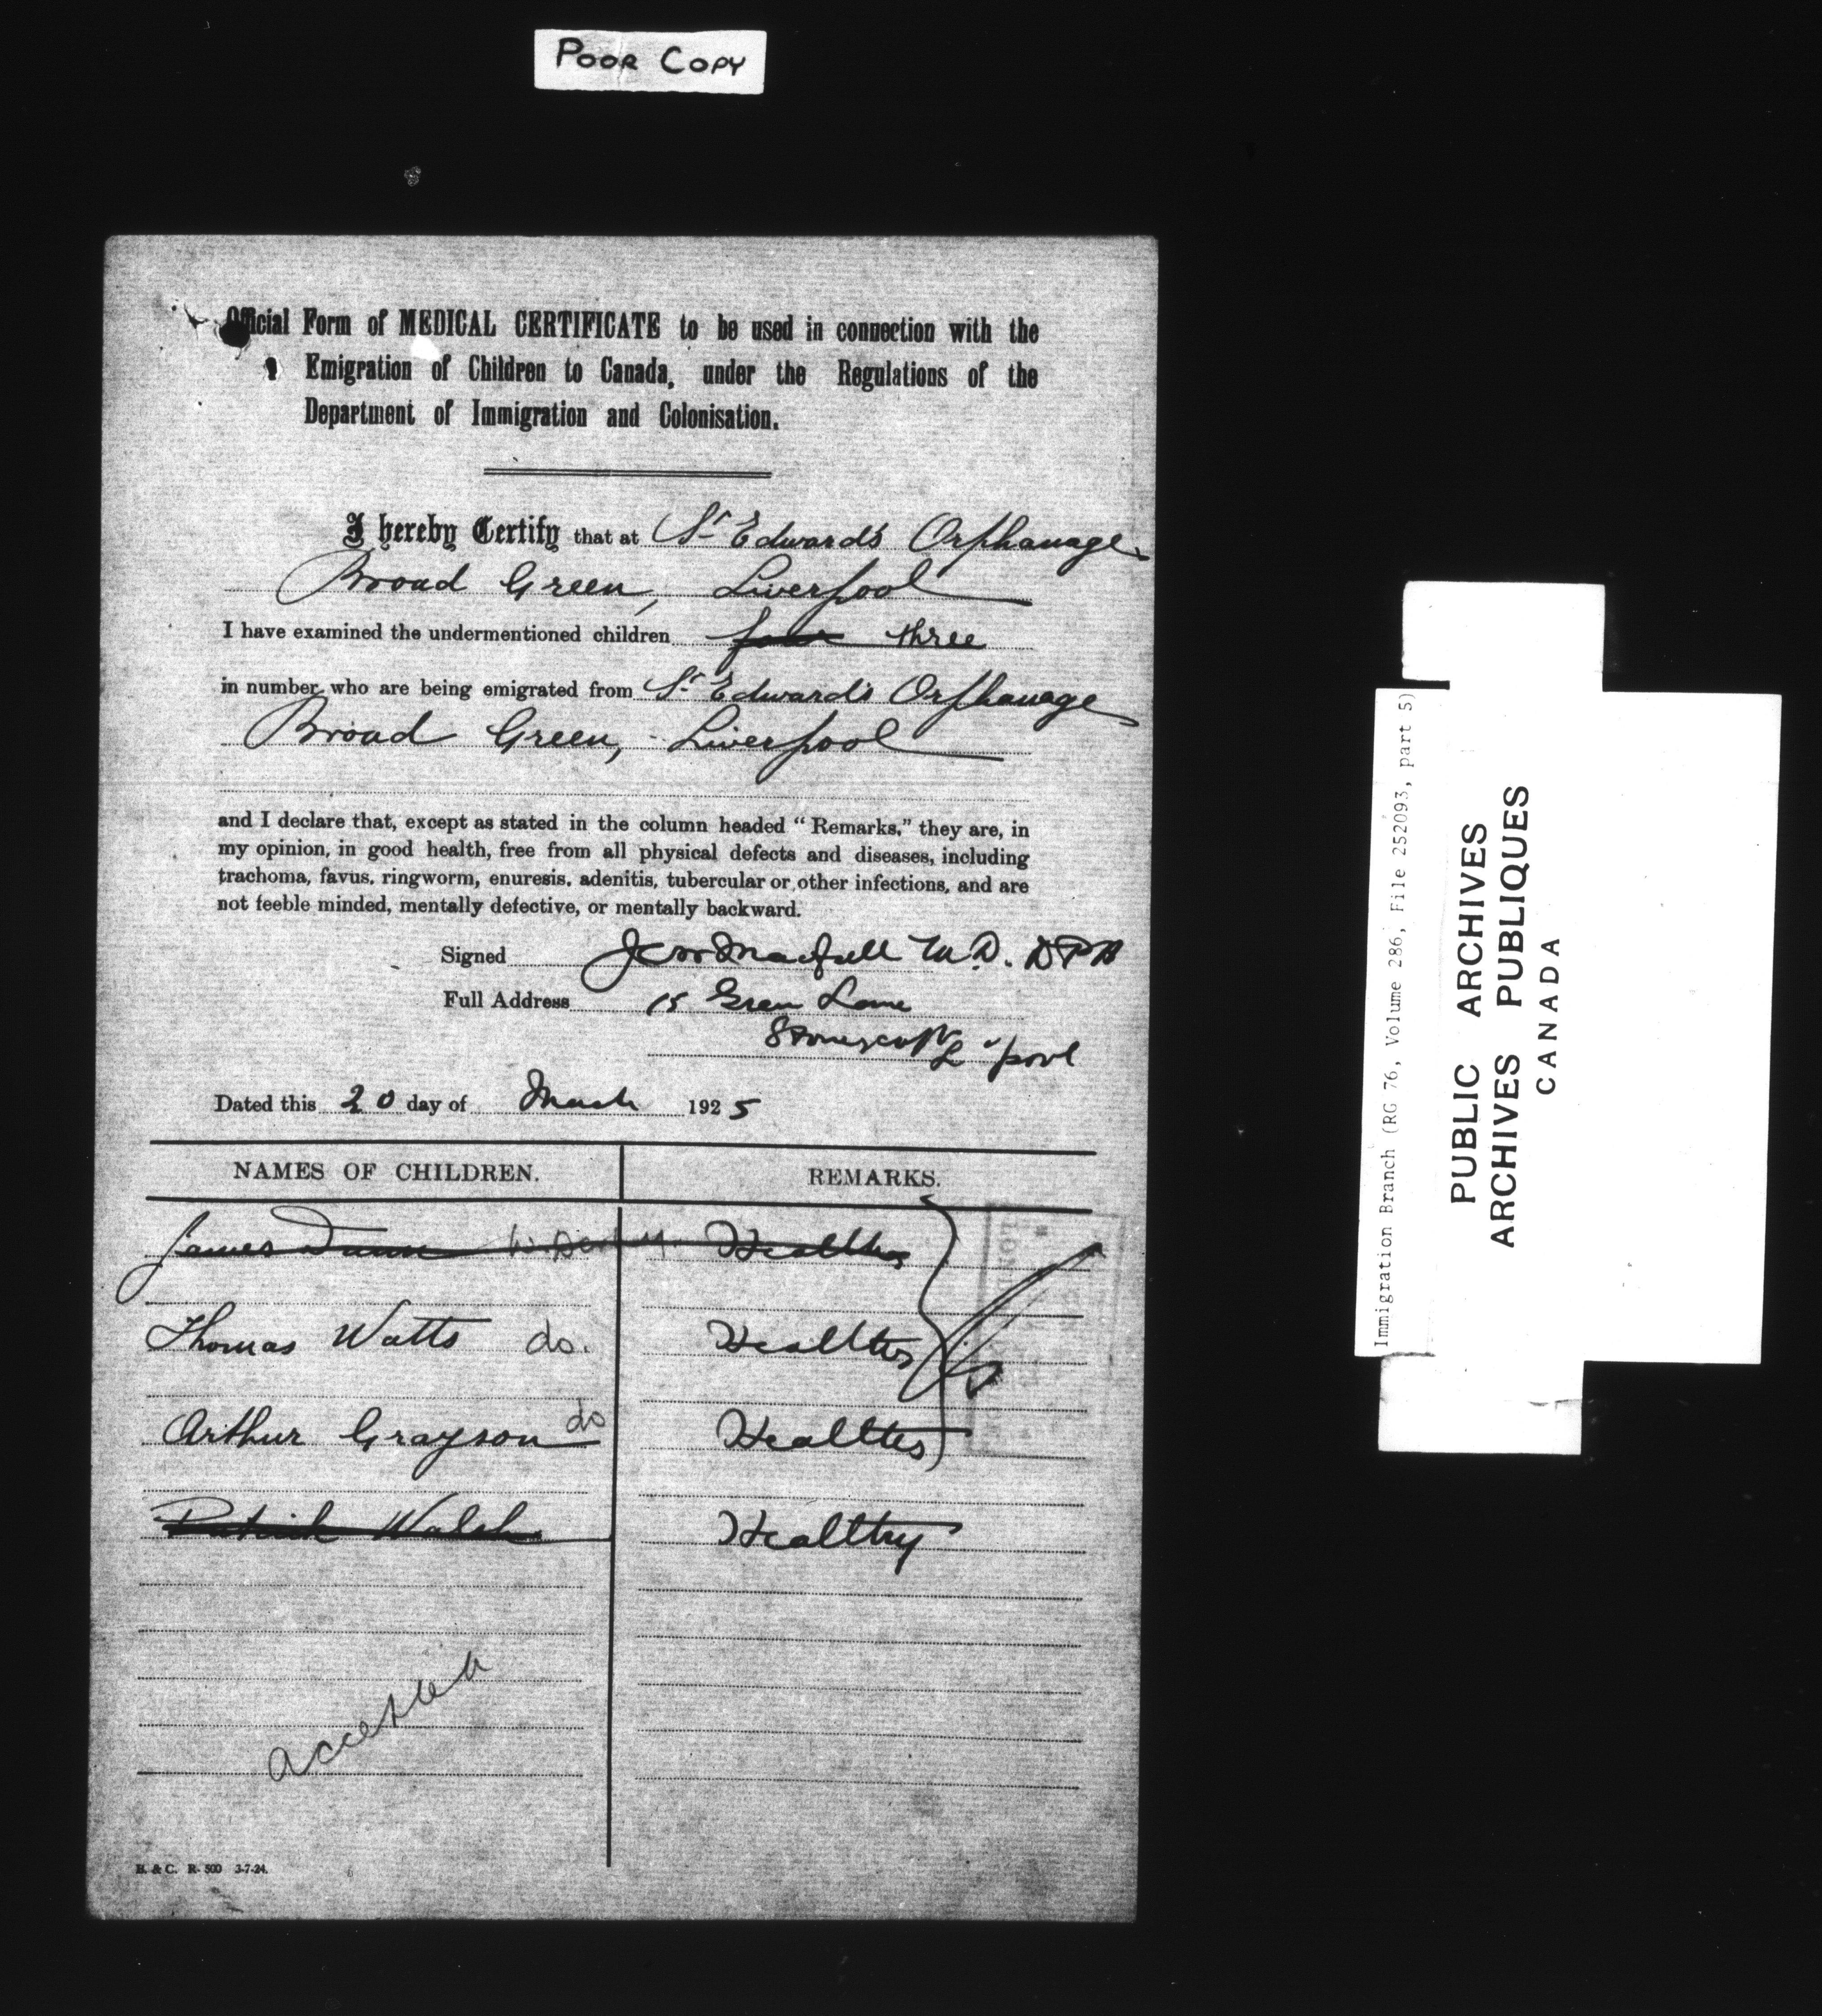 POOR COPY
Official Form of MEDICAL CERTIFICATE to be used in connection with the
Emigration of Children to Canada, under the Regulations of the
Department of Immigration and Colonisation.
I hereby Certify that at St Edward's Orphanage
Broad Green, Liverpool
I have examined the undermentioned children four three
in number who are being emigrated from St Edward's Orphanage
Broad Green, Liverpool
and I declare that, except as stated in the column headed “ Remarks,” they are, in
my opinion, in good health, free from all physical defects and diseases, including
trachoma, favus, ringworm, enuresis, adenitis, tubercular or other infections, and are
not feeble minded, mentally defective, or mentally backward.
Signed M.D. DPH
Full Address 15 Green Lane
Stoneycroft L'pool
Dated this 20 day of March 1925
NAMES OF CHILDREN. REMARKS.
James Dunn Healthy
Thomas Watts do. Healthy
Arthur Grayson do Healthy
Patrick Walsh Healthy
accepted
B. & C. R- 500 3-7-24.
Immigration Branch (RG 76, Volume 286, File 252093, part 5)
PUBLIC ARCHIVES
ARCHIVES PUBLIQUES
CANADA